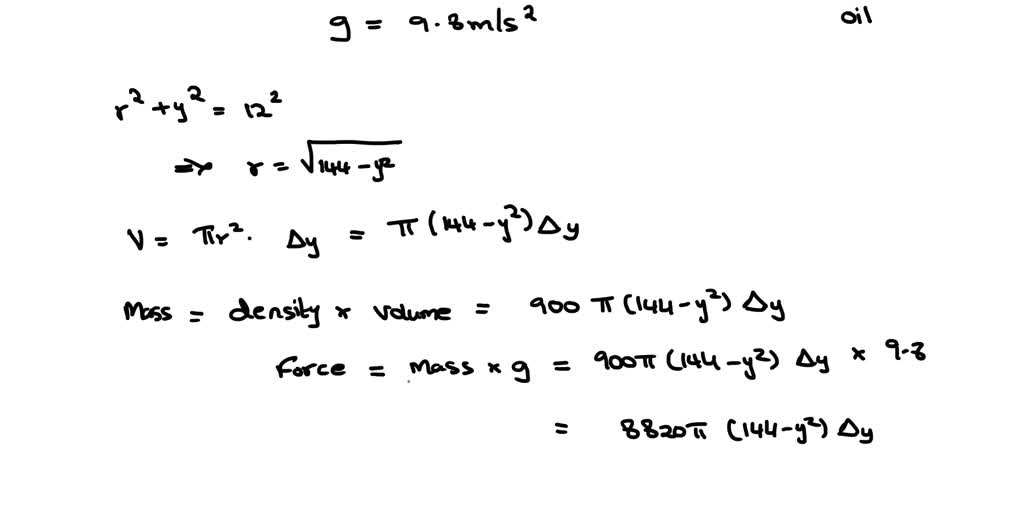 g = 9.8m/s²
oil
r² + y² = 12²
⇒ r = √144 - y²
V = πr². Δy = π (144 - y²) Δy
Mass = density × volume = 900 π (144 - y²) Δy
Force = Mass × g = 900π (144 - y²) Δy × 9.8
= 8820π (144 - y²) Δy